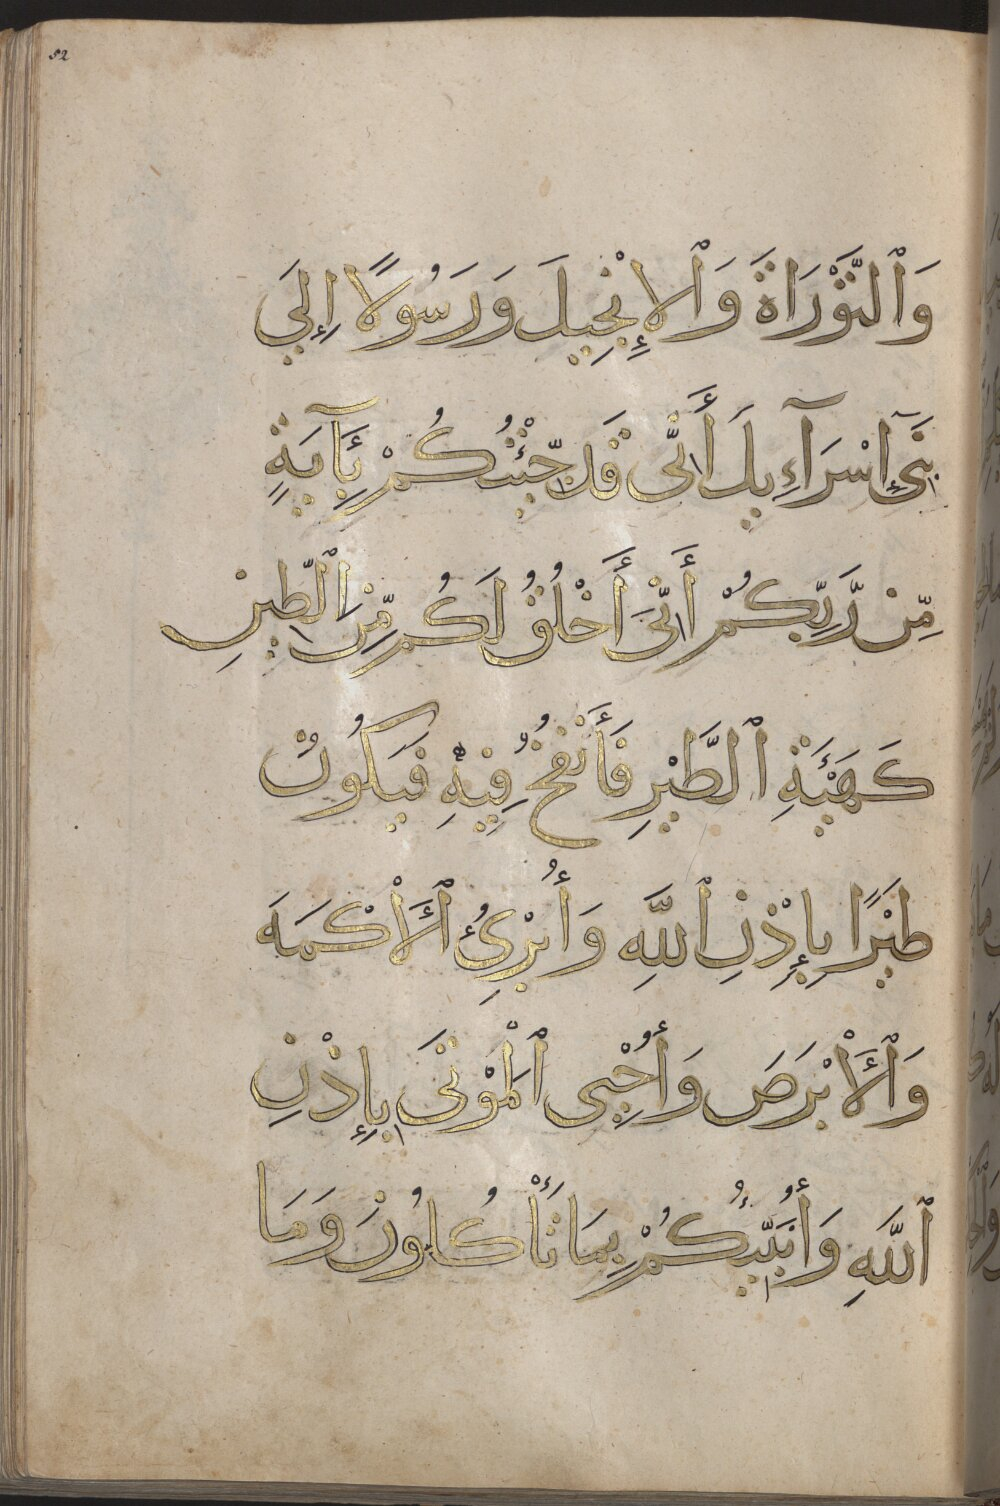 52
وَٱلتَّوْرَاةَ وَٱلْإِنْجِيلَ وَرَسُولًا إِلَىٰ
بَنِىٓ إِسْرَآءِيلَ أَنِّى قَدْ جِئْتُكُمْ بِـَٔايَةٍ
مِّن رَّبِّكُمْ أَنِّىٓ أَخْلُقُ لَكُم مِّنَ ٱلطِّينِ
كَهَيْـَٔةِ ٱلطَّيْرِ فَأَنفُخُ فِيهِ فَيَكُونُ
طَيْرًا بِإِذْنِ ٱللَّهِ وَأُبْرِئُ ٱلْأَكْمَهَ
وَٱلْأَبْرَصَ وَأُحْىِ ٱلْمَوْتَىٰ بِإِذْنِ
ٱللَّهِ وَأُنَبِّئُكُمْ بِمَا تَأْكُلُونَ وَمَا